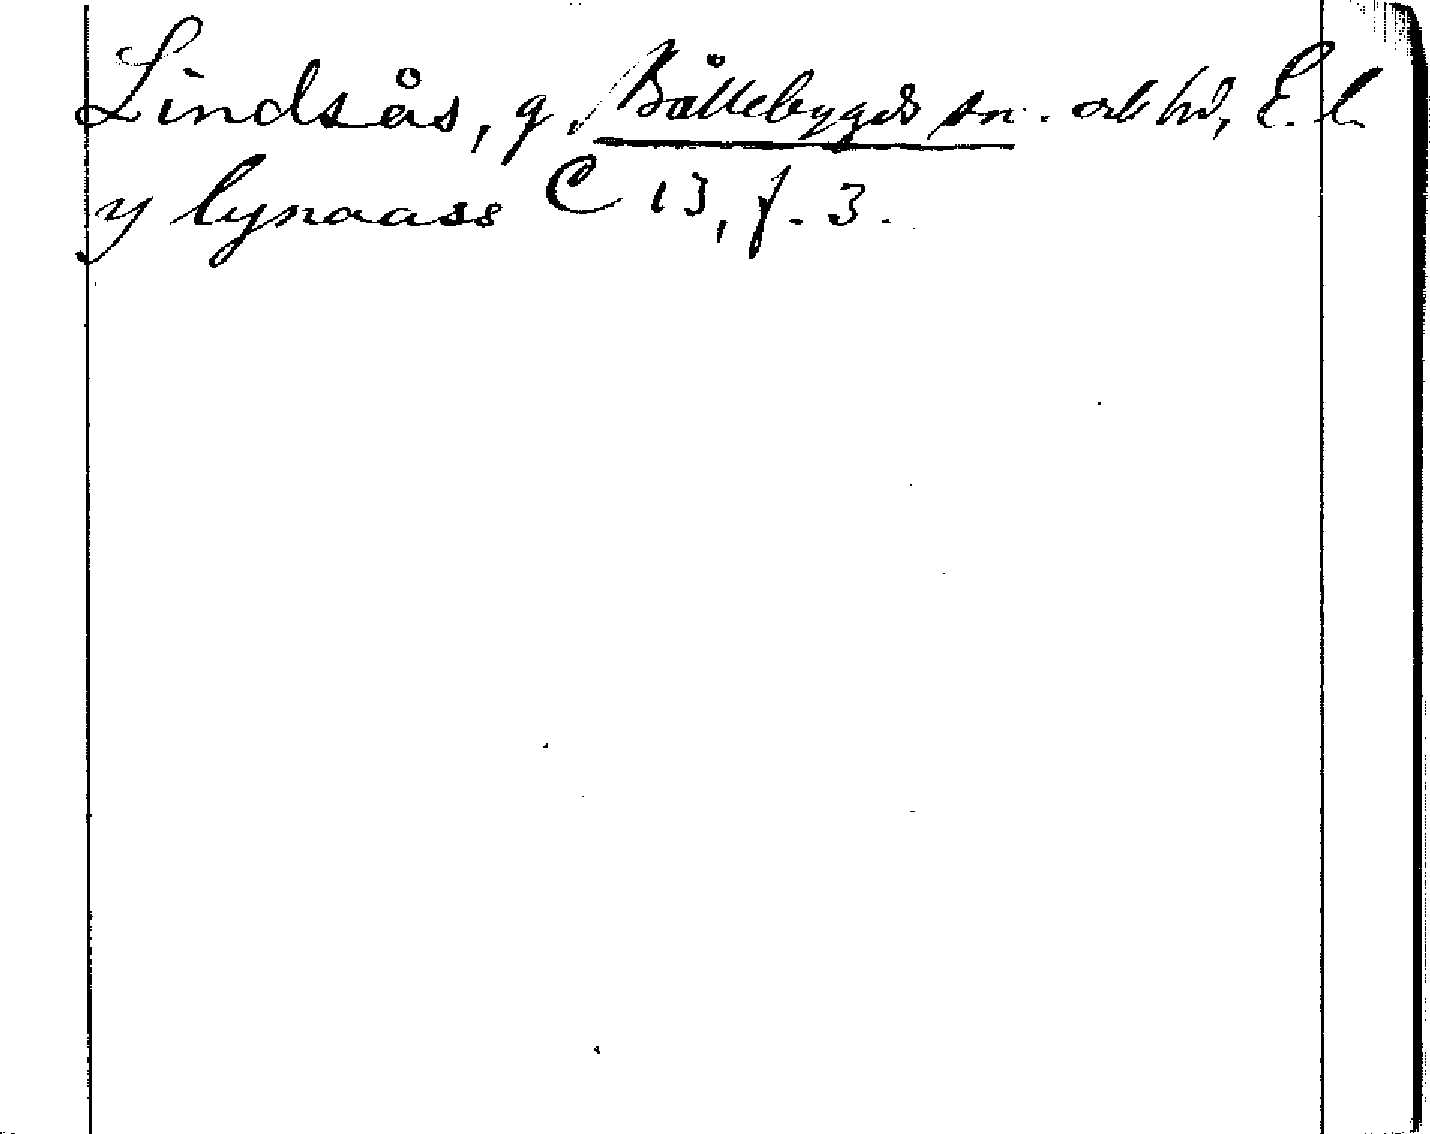 Lindsås, g. Bållebygds sn. och hd, E. l.
y lynaass C 13, f. 3.